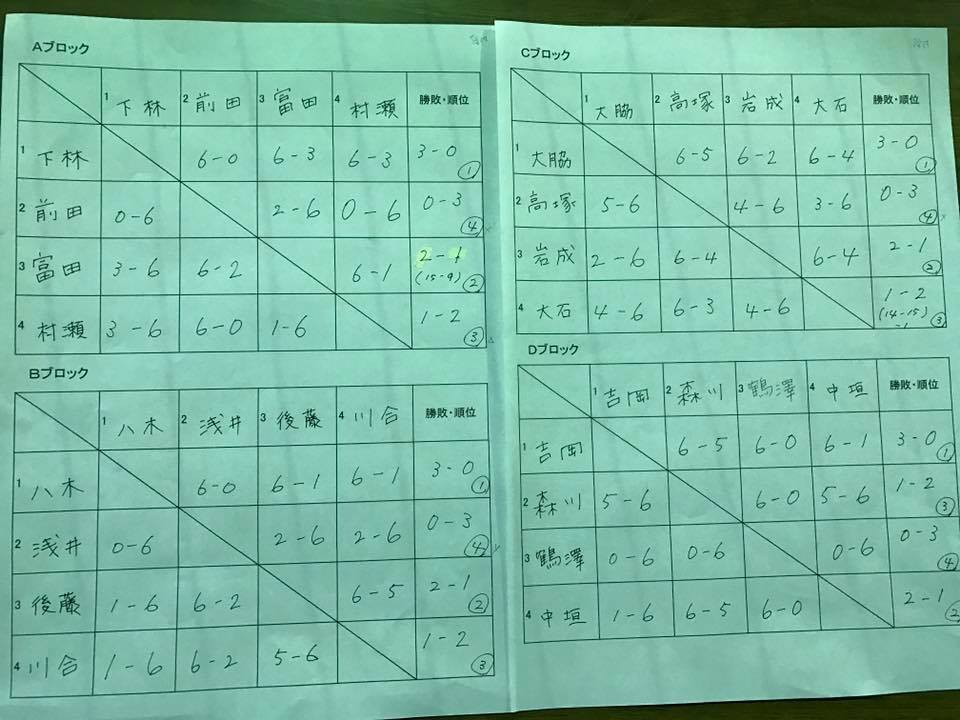 Aブロック
1 下林 2 前田 3 富田 4 村瀬 勝敗・順位
1 下林 6-0 6-3 6-3 3-0 ①
2 前田 0-6 2-6 0-6 0-3 ④
3 富田 3-6 6-2 6-1 2-1 (15-9) ②
4 村瀬 3-6 6-0 1-6 1-2 ③
Bブロック
1 八木 2 浅井 3 後藤 4 川合 勝敗・順位
1 八木 6-0 6-1 6-1 3-0 ①
2 浅井 0-6 2-6 2-6 0-3 ④
3 後藤 1-6 6-2 6-5 2-1 ②
4 川合 1-6 6-2 5-6 1-2 ③
Cブロック
1 大脇 2 高塚 3 岩成 4 大石 勝敗・順位
1 大脇 6-5 6-2 6-4 3-0 ①
2 高塚 5-6 4-6 3-6 0-3 ④
3 岩成 2-6 6-4 6-4 2-1 ②
4 大石 4-6 6-3 4-6 1-2 (14-15) ③
Dブロック
1 吉岡 2 森川 3 鶴澤 4 中垣 勝敗・順位
1 吉岡 6-5 6-0 6-1 3-0 ①
2 森川 5-6 6-0 5-6 1-2 ③
3 鶴澤 0-6 0-6 0-6 0-3 ④
4 中垣 1-6 6-5 6-0 2-1 ②